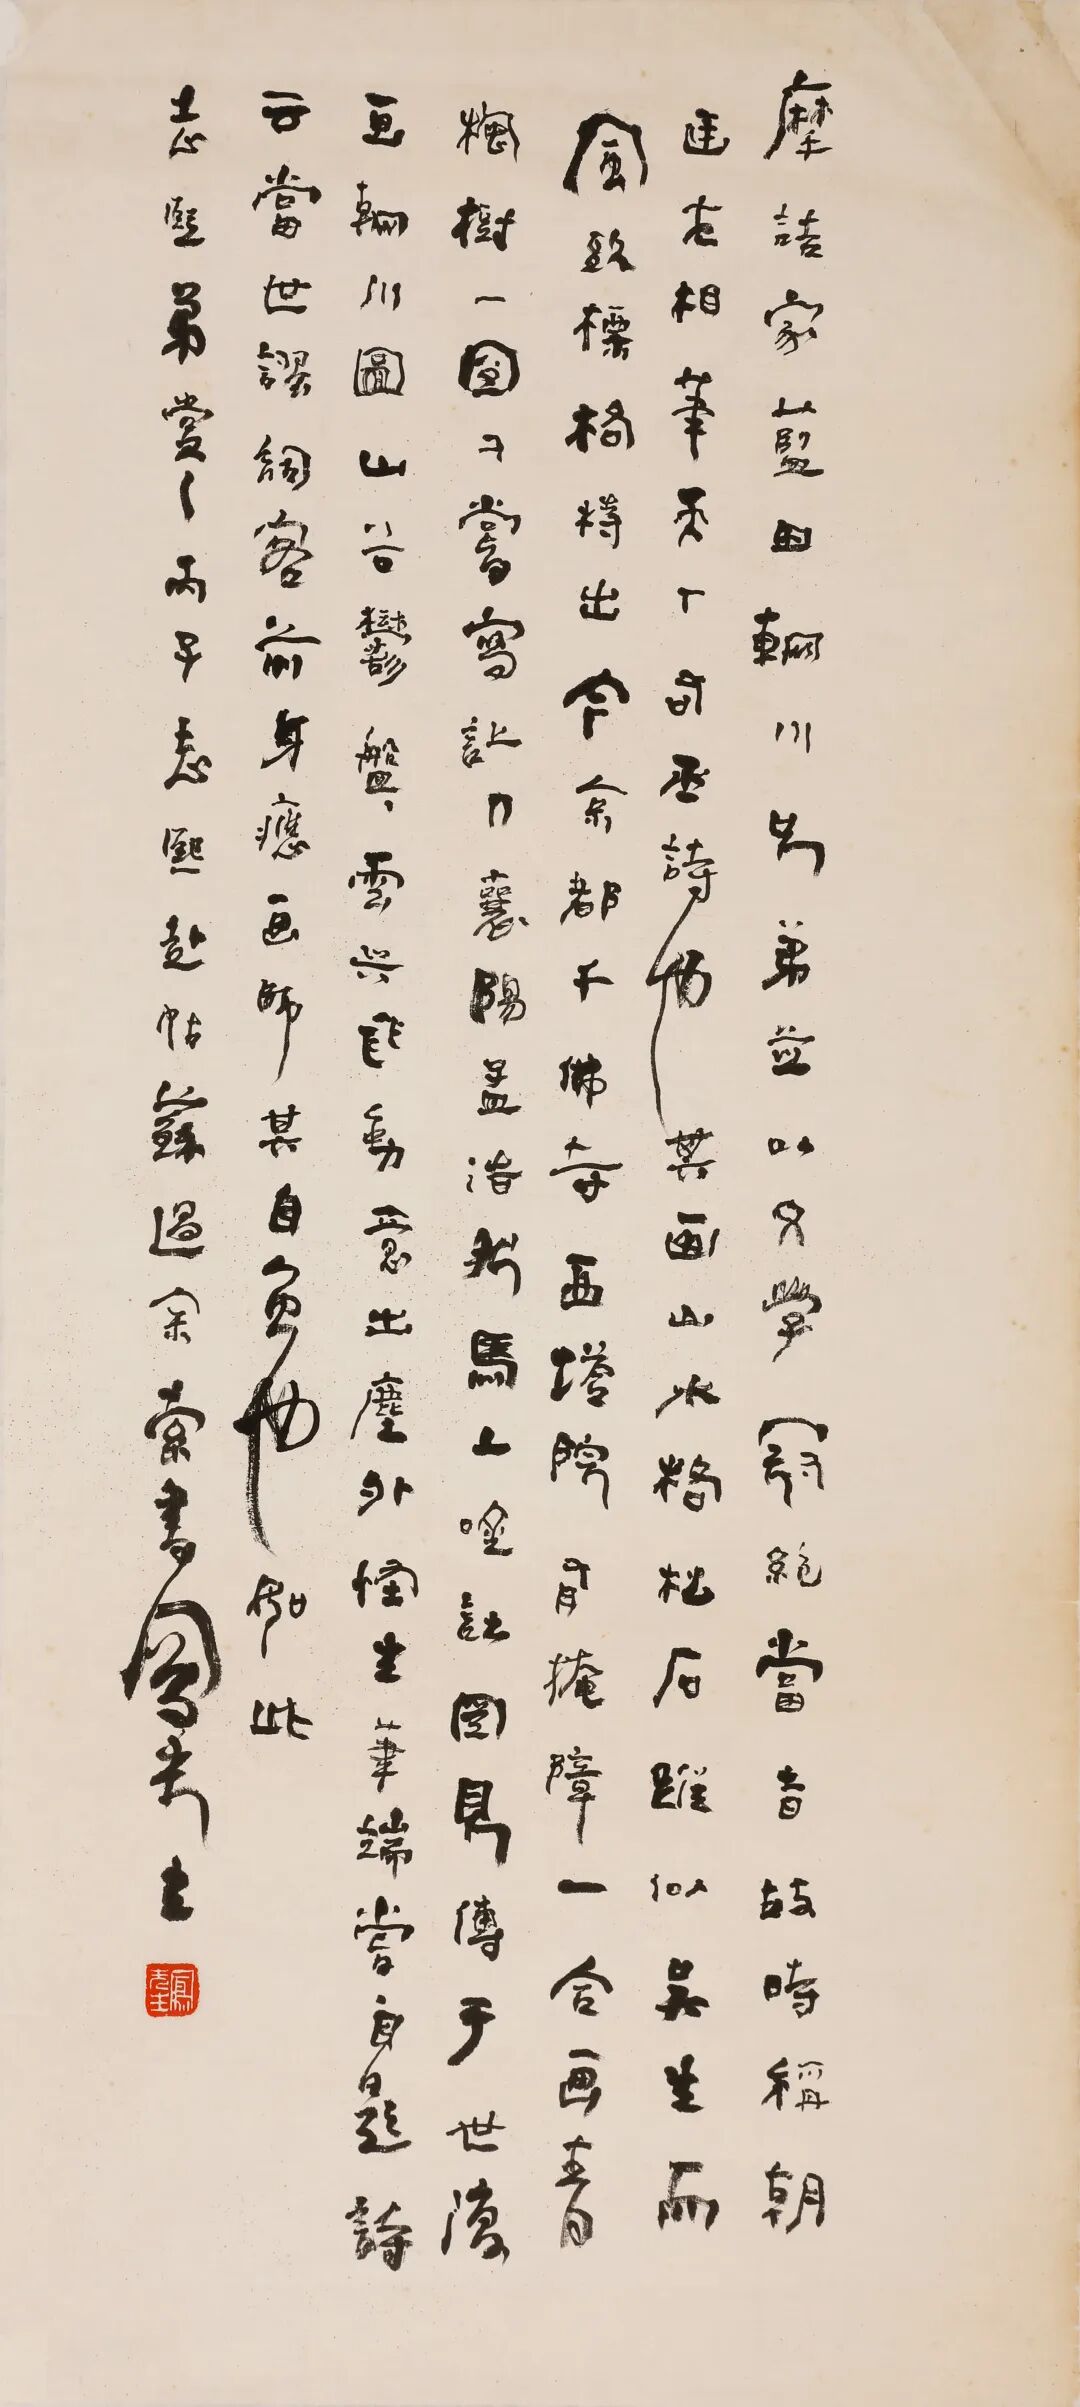 摩詰家藍田輞川兄弟並以文學冠絕當旹故時稱朝
廷左相筆天下右丞詩也其画山水格松石蹤似吳生而
風致標格特出今京都千佛寺西塔院有掩障一合画青
楓樹一圖又嘗寫詩人襄陽孟浩然馬上吟詩圖見傳于世復
画輞川圖山谷鬱盤雲水飛動意出塵外怪生筆端嘗自題詩
云當世謬詞客前身應画師其自負也如此
志熙弟賞之丙子志熙赴姑蘇過余索書鳳